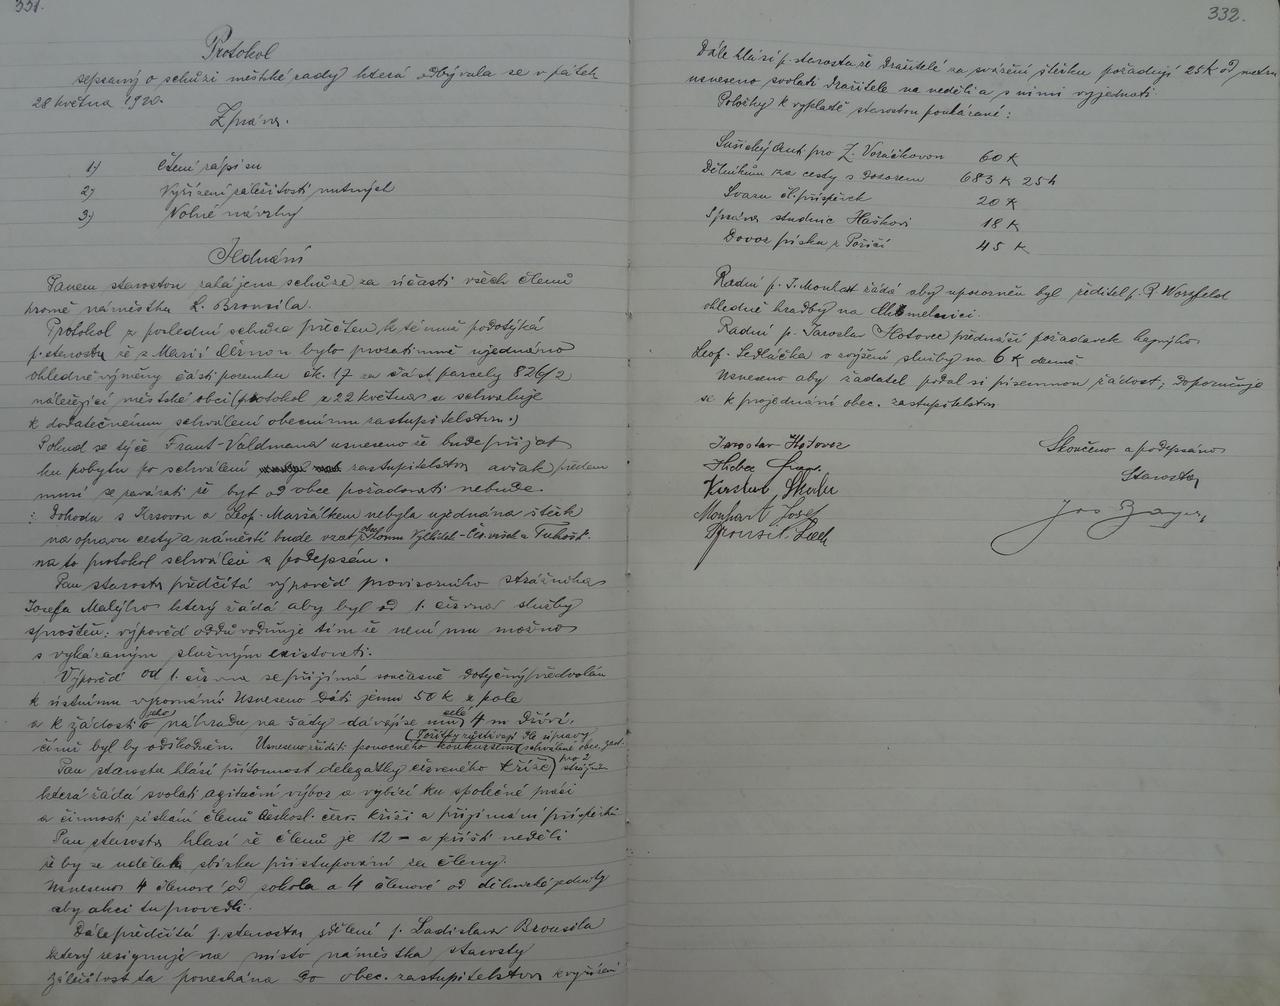 331.
Protokol
sepsaný o schůzi městské rady která odbývala se v pátek
28 května 1920.
Zpráva.
1) Čtení zápisu
2) Vyřízení záležitostí nutných
3) Volné návrhy
Jednání
Panem starostou zahájena schůze za účasti všech členů
kromě náměstka L. Brousila.
Protokol z poslední schůze přečten, k témuž podotýká
p. starosta že s Marií bylo prozatimně ujednáno
ohledně výměny části pozemku čk. 17 za část parcely 826/2
náležející městské obci (protokol z 22 května se schvaluje
k dodatečnému schválení obecnímu zastupitelstvu.)
Pokud se týče Frant. Valdmana usneseno že bude přijat
ku pobytu po schválení zastupitelstva avšak předem
musí se zavázati že byt od obce požadovati nebude.
: Dohoda s Krsovou a Leop. Maršálkem nebyla ujednána štěrk
na opravu cesty a náměstí bude vzat
na to protokol schválen a podepsán.
Pan starosta předčítá výpověď provisorního strážníka
Josefa Malýho který žádá aby byl od 1. června služby
sproštěn: výpověď oddůvodňuje tím že není mu možno
s vykázaným služným existovati.
Výpověď od 1. června se přijímá současně dotyčný předvolán
k ústnímu vyrovnání. Usneseno dáti jemu 50 K z pole
a k žádosti jeho o náhradu na šaty dávají se mu celé 4 m dříví,
čímž byl by odškodněn. Usneseno zříditi ponocného konkursem (schválené obec. zast.
pro 2
Pan starosta hlásí přítomnost delegátky červeného kříže)
která žádá svolati agitační výbor a vybízí ku společné práci
a činnosti získání členů českosl. červ. kříži a přijímání příspěvků
Pan starosta hlásí že členů je 12 – a příští neděli
že by se udělala sbírka přistupování za členy.
Usneseno 4 členové od sokola a 4 členové od dělnické jednoty
aby akci tu provedli.
Dále předčítá p. starosta sdělení p. Ladislava Brousila
který resignuje na místo náměstka starosty
záležitost ta ponechána do obec. zastupitelstva k vyřízení
332.
Dále hlásí p. starosta že dražitelé za svážení štěrku požadují 25 K od metru
usneseno svolati dražitele na neděli a s nimi vyjednati.
Položky k výplatě starostou poukázané:
Sušický Ant. pro Z. Voráčkovou 60 K
Dělníkům za cesty s dozorem 683 K 25 h
Svazu čl. příspěvek 20 K
Správa studnic Haškovi 18 K
Dovoz písku z Poříčí 45 K
Radní p. J. Monhart žádá aby upozorněn byl ředitel p. R. Worsfeld
ohledně hradby na Chmelnici.
Radní p. Jaroslav Hotovec přednáší požadavek hajného
Leop. Sedláčka o zvýšení služby na 6 K denně
Usneseno aby žadatel podal si písemnou žádost; doporučuje
se k projednání obec. zastupitelstvu
Jaroslav Hotovec
Skončeno a podepsáno
Starosta
Monhart Josef
Brousil Lad.